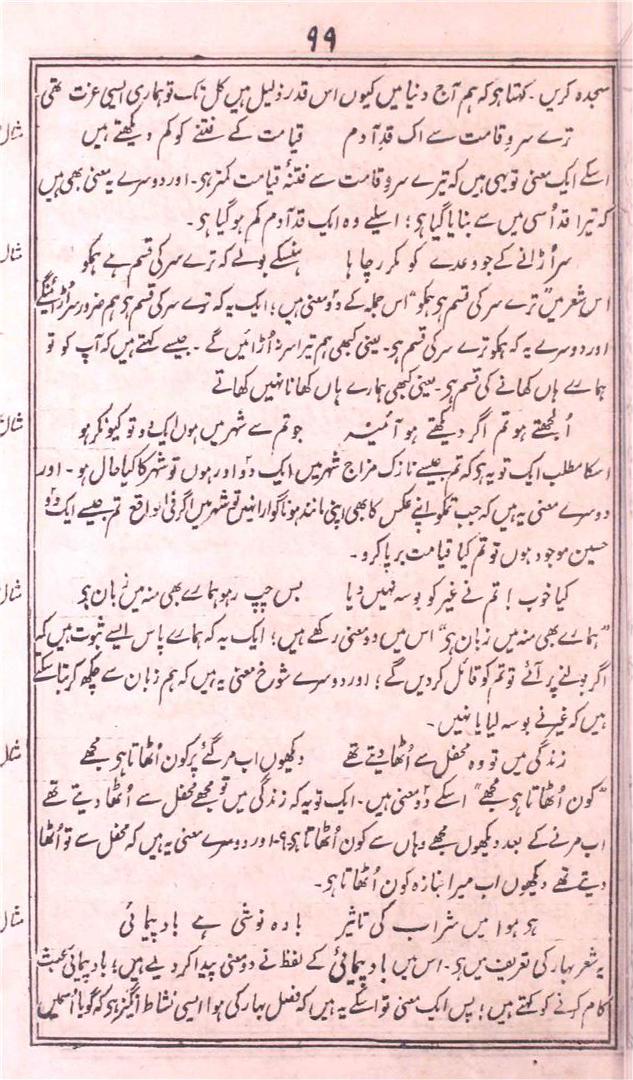 ۹۹
سجدہ کریں۔ کہتا ہو کہ ہم آج دنیا میں کیوں اس قدر ذلیل ہیں کل تک تو ہماری ایسی عزت تھی
مثال ترے سروِ قامت سے اک قدِ آدم قیامت کے فتنے کو کم دیکھتے ہیں
اسکے ایک معنی تو یہی ہیں کہ تیرے سروِ قامت سے فتنۂ قیامت کمتر ہی۔ اور دوسرے یہ معنی بھی ہیں
کہ تیرا قد اُسی میں سے بنایا گیا ہی؛ اسلیے وہ ایک قدِ آدم کم ہو گیا ہی۔
مثال سر اُڑانے کے جو وعدے کو مکرر چاہا ہنسکے بولے کہ ترے سر کی قسم ہے ہمکو
اس شعر میں ”ترے سر کی قسم ہی ہمکو“ اس جملہ کے دو معنی ہیں؛ ایک یہ کہ ترے سر کی قسم ہی ہم ضرور سر اُڑائینگے
اور دوسرے یہ کہ ہمکو ترے سر کی قسم ہی۔ یعنی کبھی ہم تیرا سر نہ اُڑائیں گے۔ جیسے کہتے ہیں کہ آپ کو تو
ہمارے ہاں کھانے کی قسم ہی۔ یعنی کبھی ہمارے ہاں کھانا نہیں کھاتے
مثال اُلجھتے ہو تم اگر دیکھتے ہو آئینہ جو تم سے شہر میں ہوں ایک دو تو کیونکر ہو
اسکا مطلب ایک تو یہ ہو کہ تم جیسے نازک مزاج شہر میں ایک دو اور ہوں تو شہر کا کیا حال ہو۔ اور
دوسرے معنی یہ ہیں کہ جب تمکو اپنے عکس کا بھی اپنی مانند ہونا گوارا نہیں تو شہر میں اگر فی الواقع تم جیسے ایک دو
حسین موجود ہوں تو تم کیا قیامت برپا کرو۔
مثال کیا خوب! تم نے غیر کو بوسہ نہیں دیا بس چپ رہو ہمارے بھی منہ میں زبان ہی
”ہمارے بھی منہ میں زبان ہی“ اس میں دو معنی رکھے ہیں؛ ایک یہ کہ ہمارے پاس ایسے ثبوت ہیں کہ
اگر بولنے پر آئے تو تم کو قائل کر دیں گے؛ اور دوسرے شوخ معنی یہ ہیں کہ ہم زبان سے چکھ کر بتا سکتے
ہیں کہ غیر نے بوسہ لیا یا نہیں۔
مثال زندگی میں تو وہ محفل سے اُٹھا دیتے تھے دیکھوں اب مر گئے پر کون اُٹھاتا ہی مجھے
”کون اُٹھاتا ہی مجھے“ اسکے دو معنی ہیں۔ ایک تو یہ کہ زندگی میں تو مجھے محفل سے اُٹھا دیتے تھے
اب مرنے کے بعد دیکھوں مجھے وہاں سے کون اُٹھاتا ہی؟ اور دوسرے معنی یہ ہیں کہ محفل سے تو اُٹھا
دیتے تھے دیکھوں اب میرا جنازہ کون اُٹھاتا ہی۔
مثال ہی ہوا میں شراب کی تاثیر بادہ نوشی ہے باد پیمائی
یہ شعر بہار کی تعریف میں ہی۔ اس میں باد پیمائی کے لفظ نے دو معنی پیدا کر دیے ہیں؛ باد پیمائی عبث
کام کرنے کو کہتے ہیں؛ پس ایک معنی تو اسکے یہ ہیں کہ فصلِ بہار کی ہوا ایسی نشاط انگیز ہی کہ گویا اُسمیں